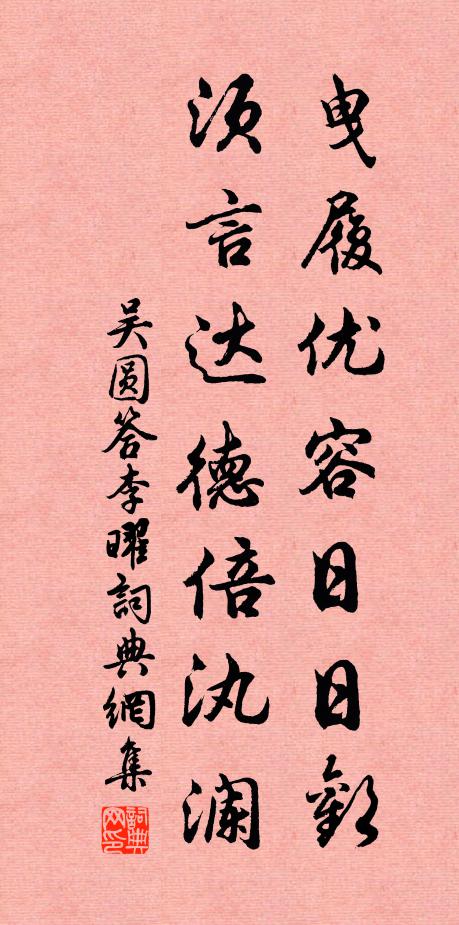 曳履优容日日歡
须言达德倍汍澜
吴圆答李曜詞典網集
詞典网印